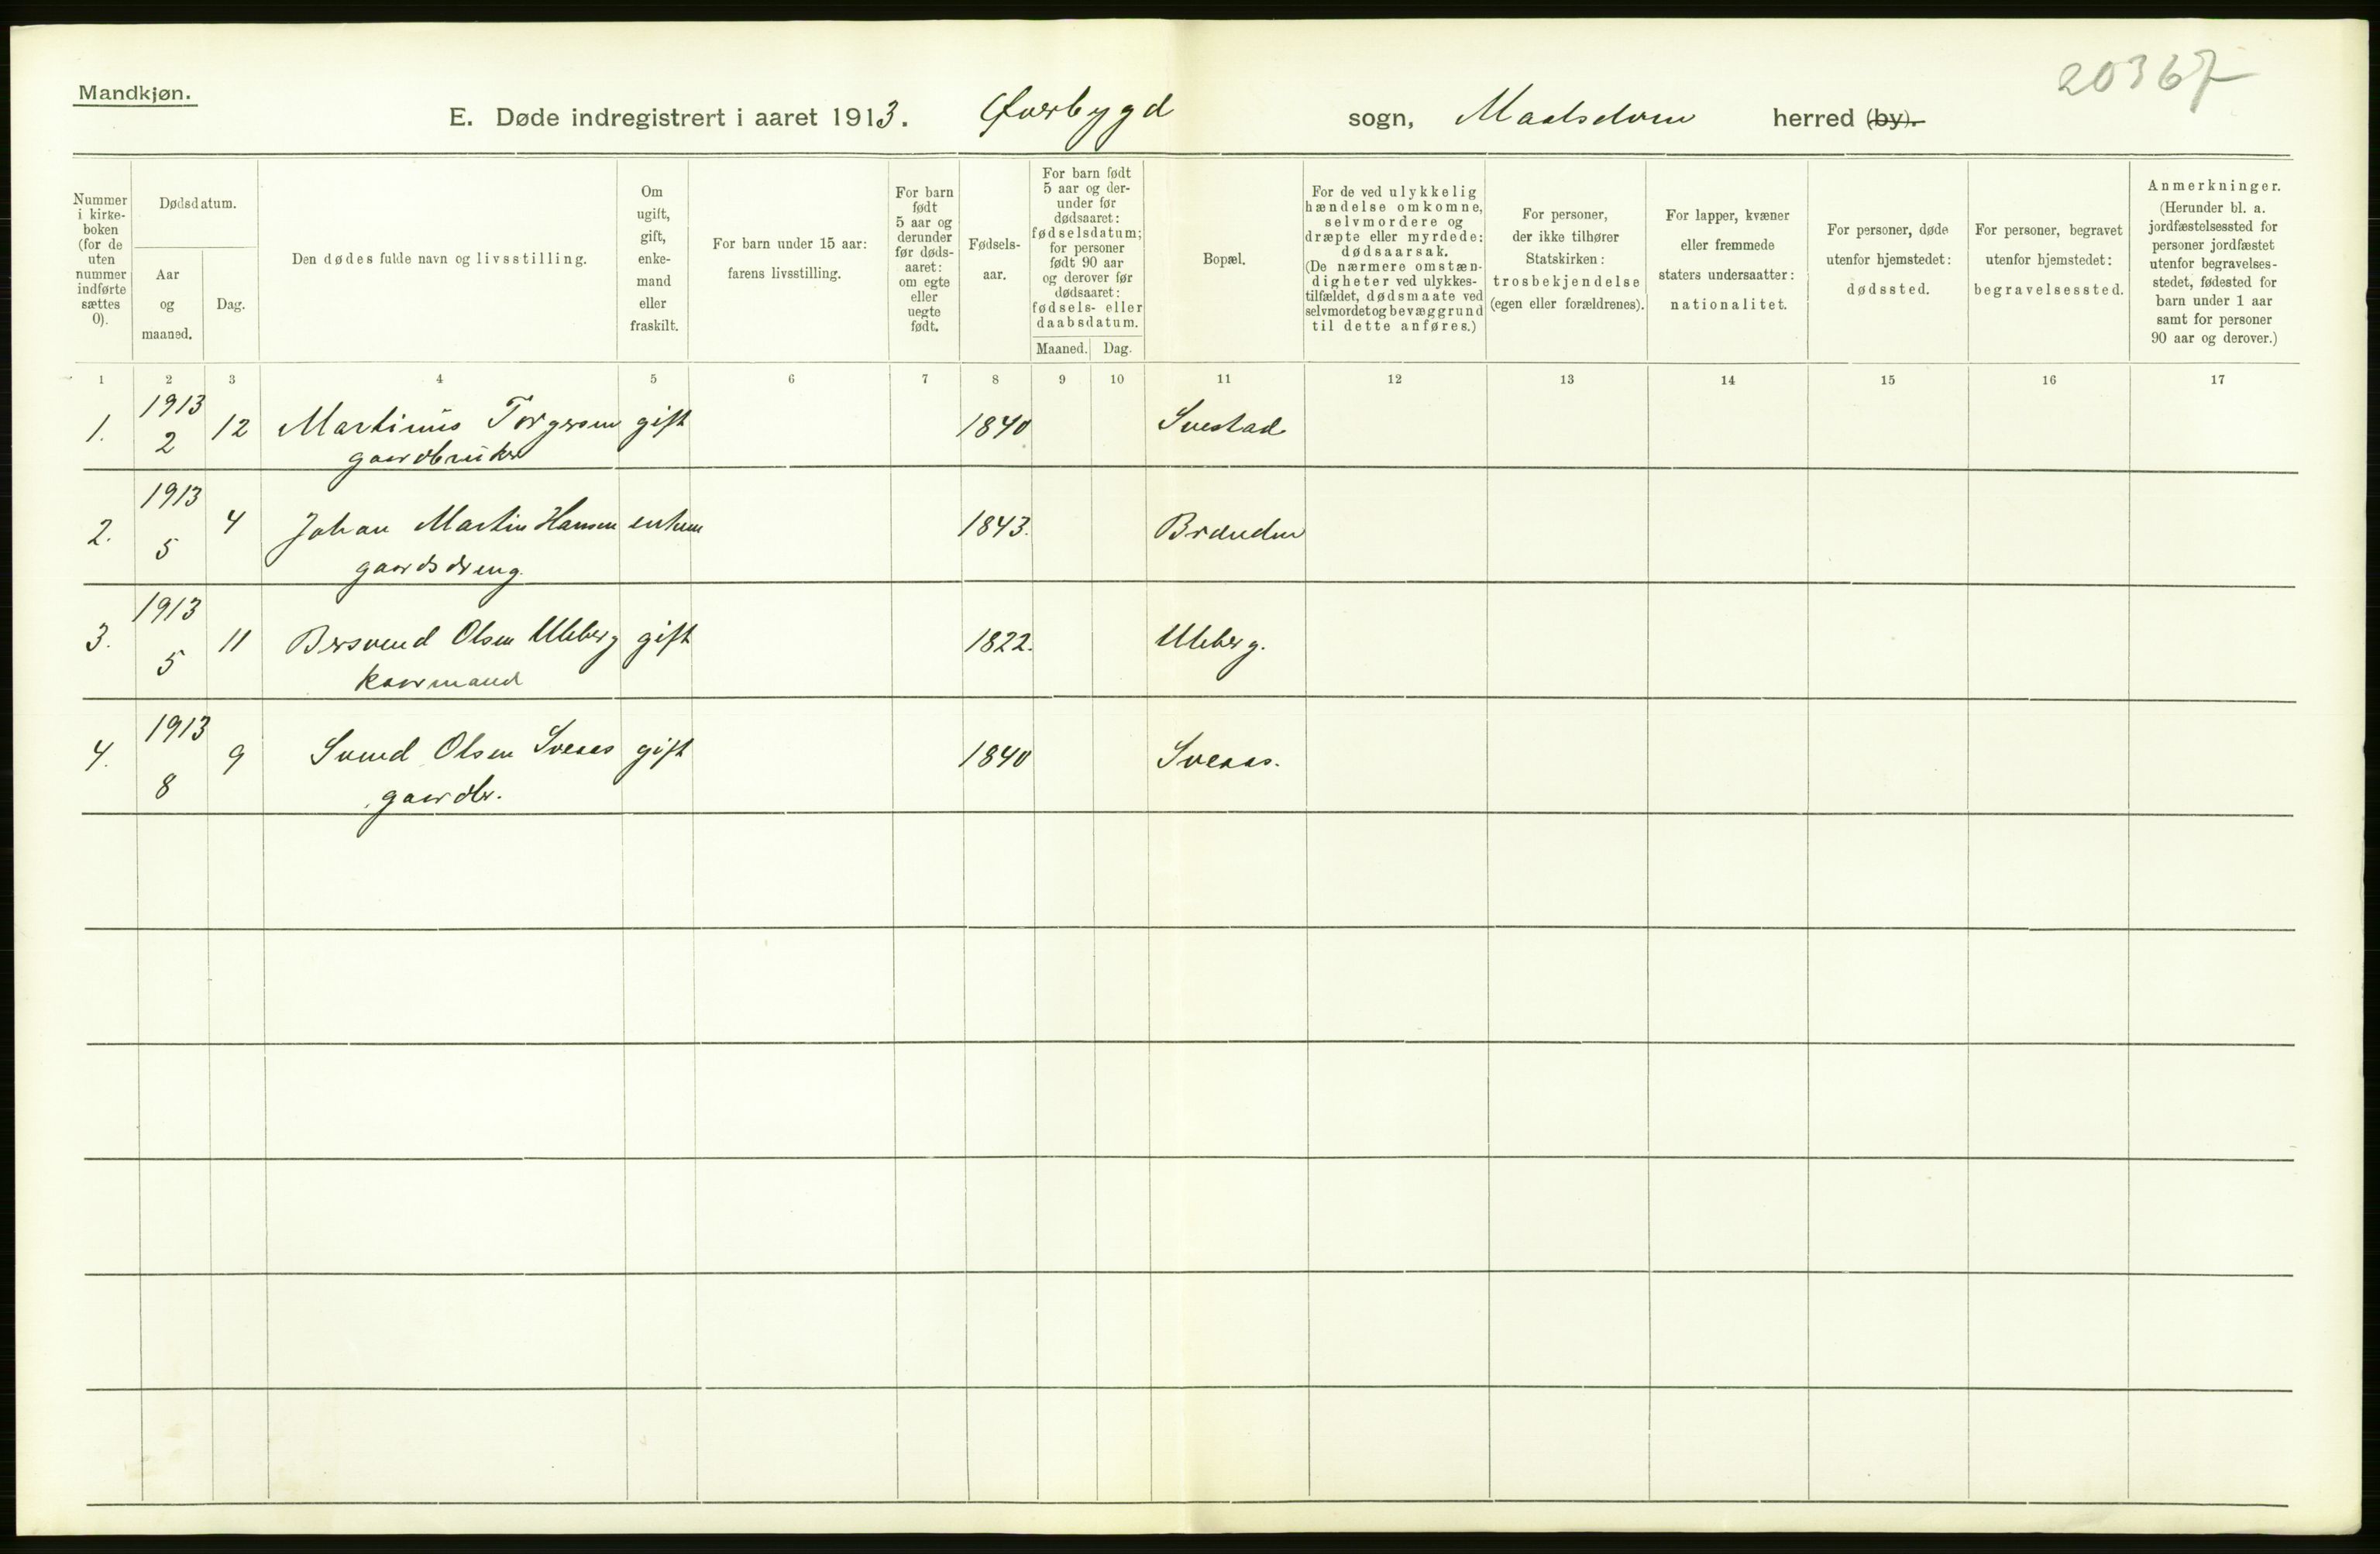 Mandkjøn.
20367
E. Døde indregistrert i aaret 1913. Øverbygd sogn, Maalselven herred (by).
Nummer i kirkeboken (for de uten nummer indførte sættes 0).
Dødsdatum.
Aar og maaned.
Dag.
Den dødes fulde navn og livsstilling.
Om ugift, gift, enkemand eller fraskilt.
For barn under 15 aar: farens livsstilling.
For barn født 5 aar og derunder før dødsaaret: om egte eller uegte født.
Fødselsaar.
For barn født 5 aar og derunder før dødsaaret: fødselsdatum; for personer født 90 aar og derover før dødsaaret: fødsels- eller daabsdatum.
Maaned. Dag.
Bopæl.
For de ved ulykkelig hændelse omkomne, selvmordere og dræpte eller myrdede: dødsaarsak. (De nærmere omstændigheter ved ulykkestilfældet, dødsmaate ved selvmordet og bevæggrund til dette anføres.)
For personer, der ikke tilhører Statskirken: trosbekjendelse (egen eller forældrenes).
For lapper, kvæner eller fremmede staters undersaatter: nationalitet.
For personer, døde utenfor hjemstedet: dødssted.
For personer, begravet utenfor hjemstedet: begravelsessted.
Anmerkninger. (Herunder bl. a. jordfæstelsessted for personer jordfæstet utenfor begravelsesstedet, fødested for barn under 1 aar samt for personer 90 aar og derover.)
1 2 3 4 5 6 7 8 9 10 11 12 13 14 15 16 17
1. 1913 2 12 Martinus Torgersen gift 1840 Svestad
gaardbruker
2. 1913 5 4 Johan Martin Hansen enkem 1843. Brænden
gaardsdreng.
3. 1913 5 11 Bersvend Olsen Uleberg gift 1822. Uleberg.
kaarmand
4. 1913 8 9 Svend Olsen Sveaas gift 1840 Sveaas.
gaardbr.